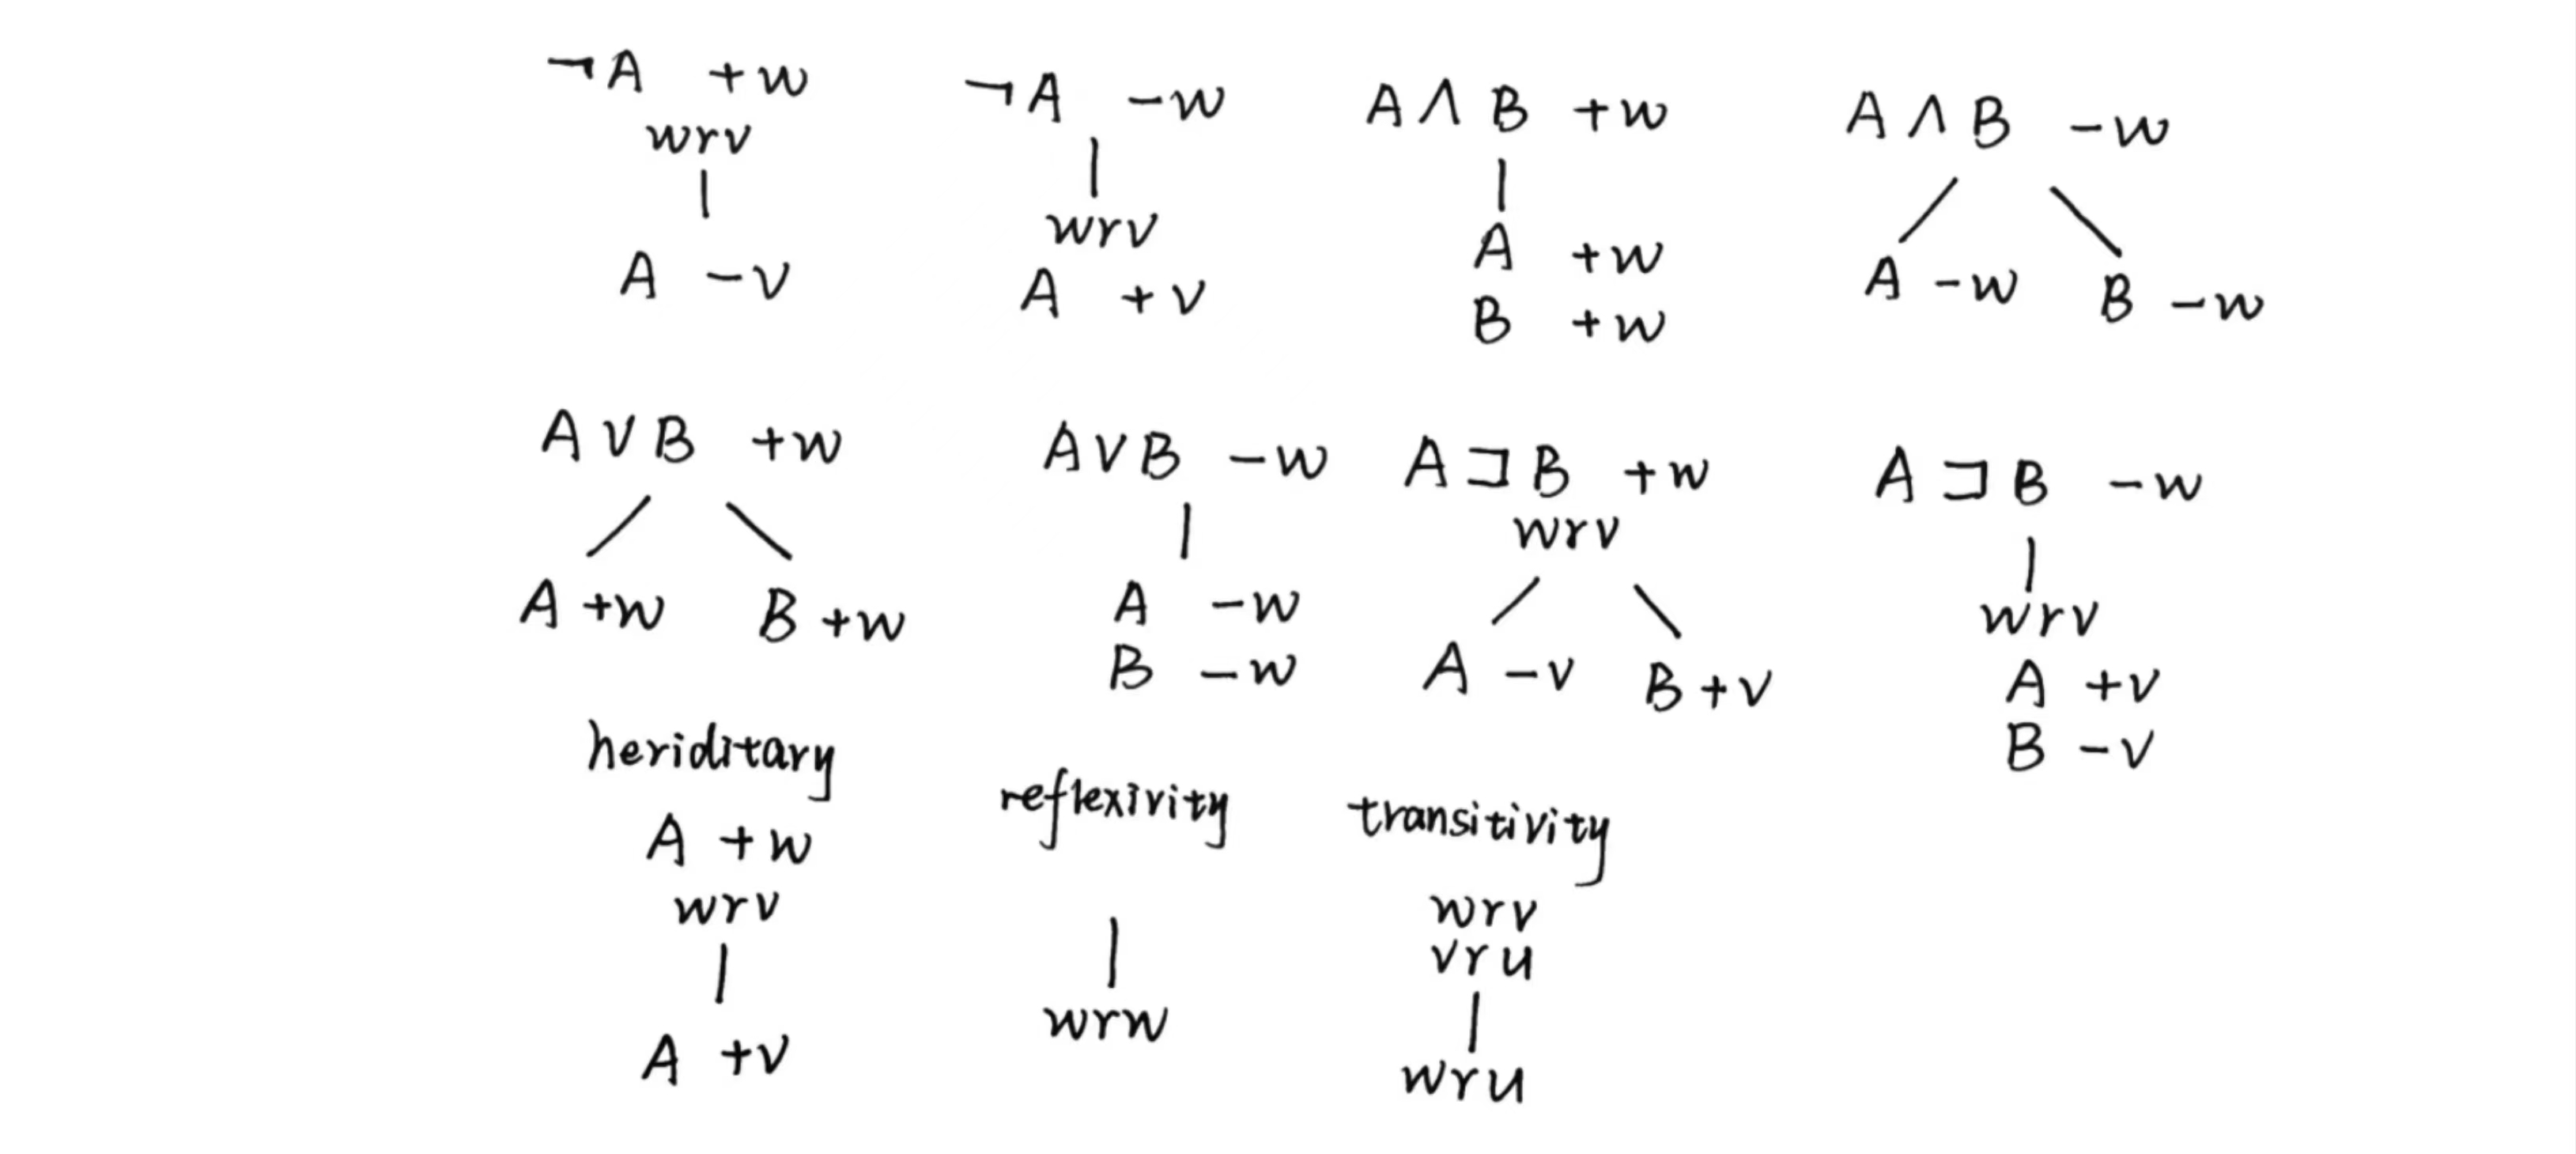 ¬A +w
wrv
A -v
¬A -w
wrv
A +v
A∧B +w
A +w
B +w
A∧B -w
A -w B -w
A∨B +w
A +w B +w
A∨B -w
A -w
B -w
A⊐B +w
wrv
A -v B +v
A⊐B -w
wrv
A +v
B -v
heriditary
A +w
wrv
A +v
reflexivity
wrw
transitivity
wrv
vru
wru